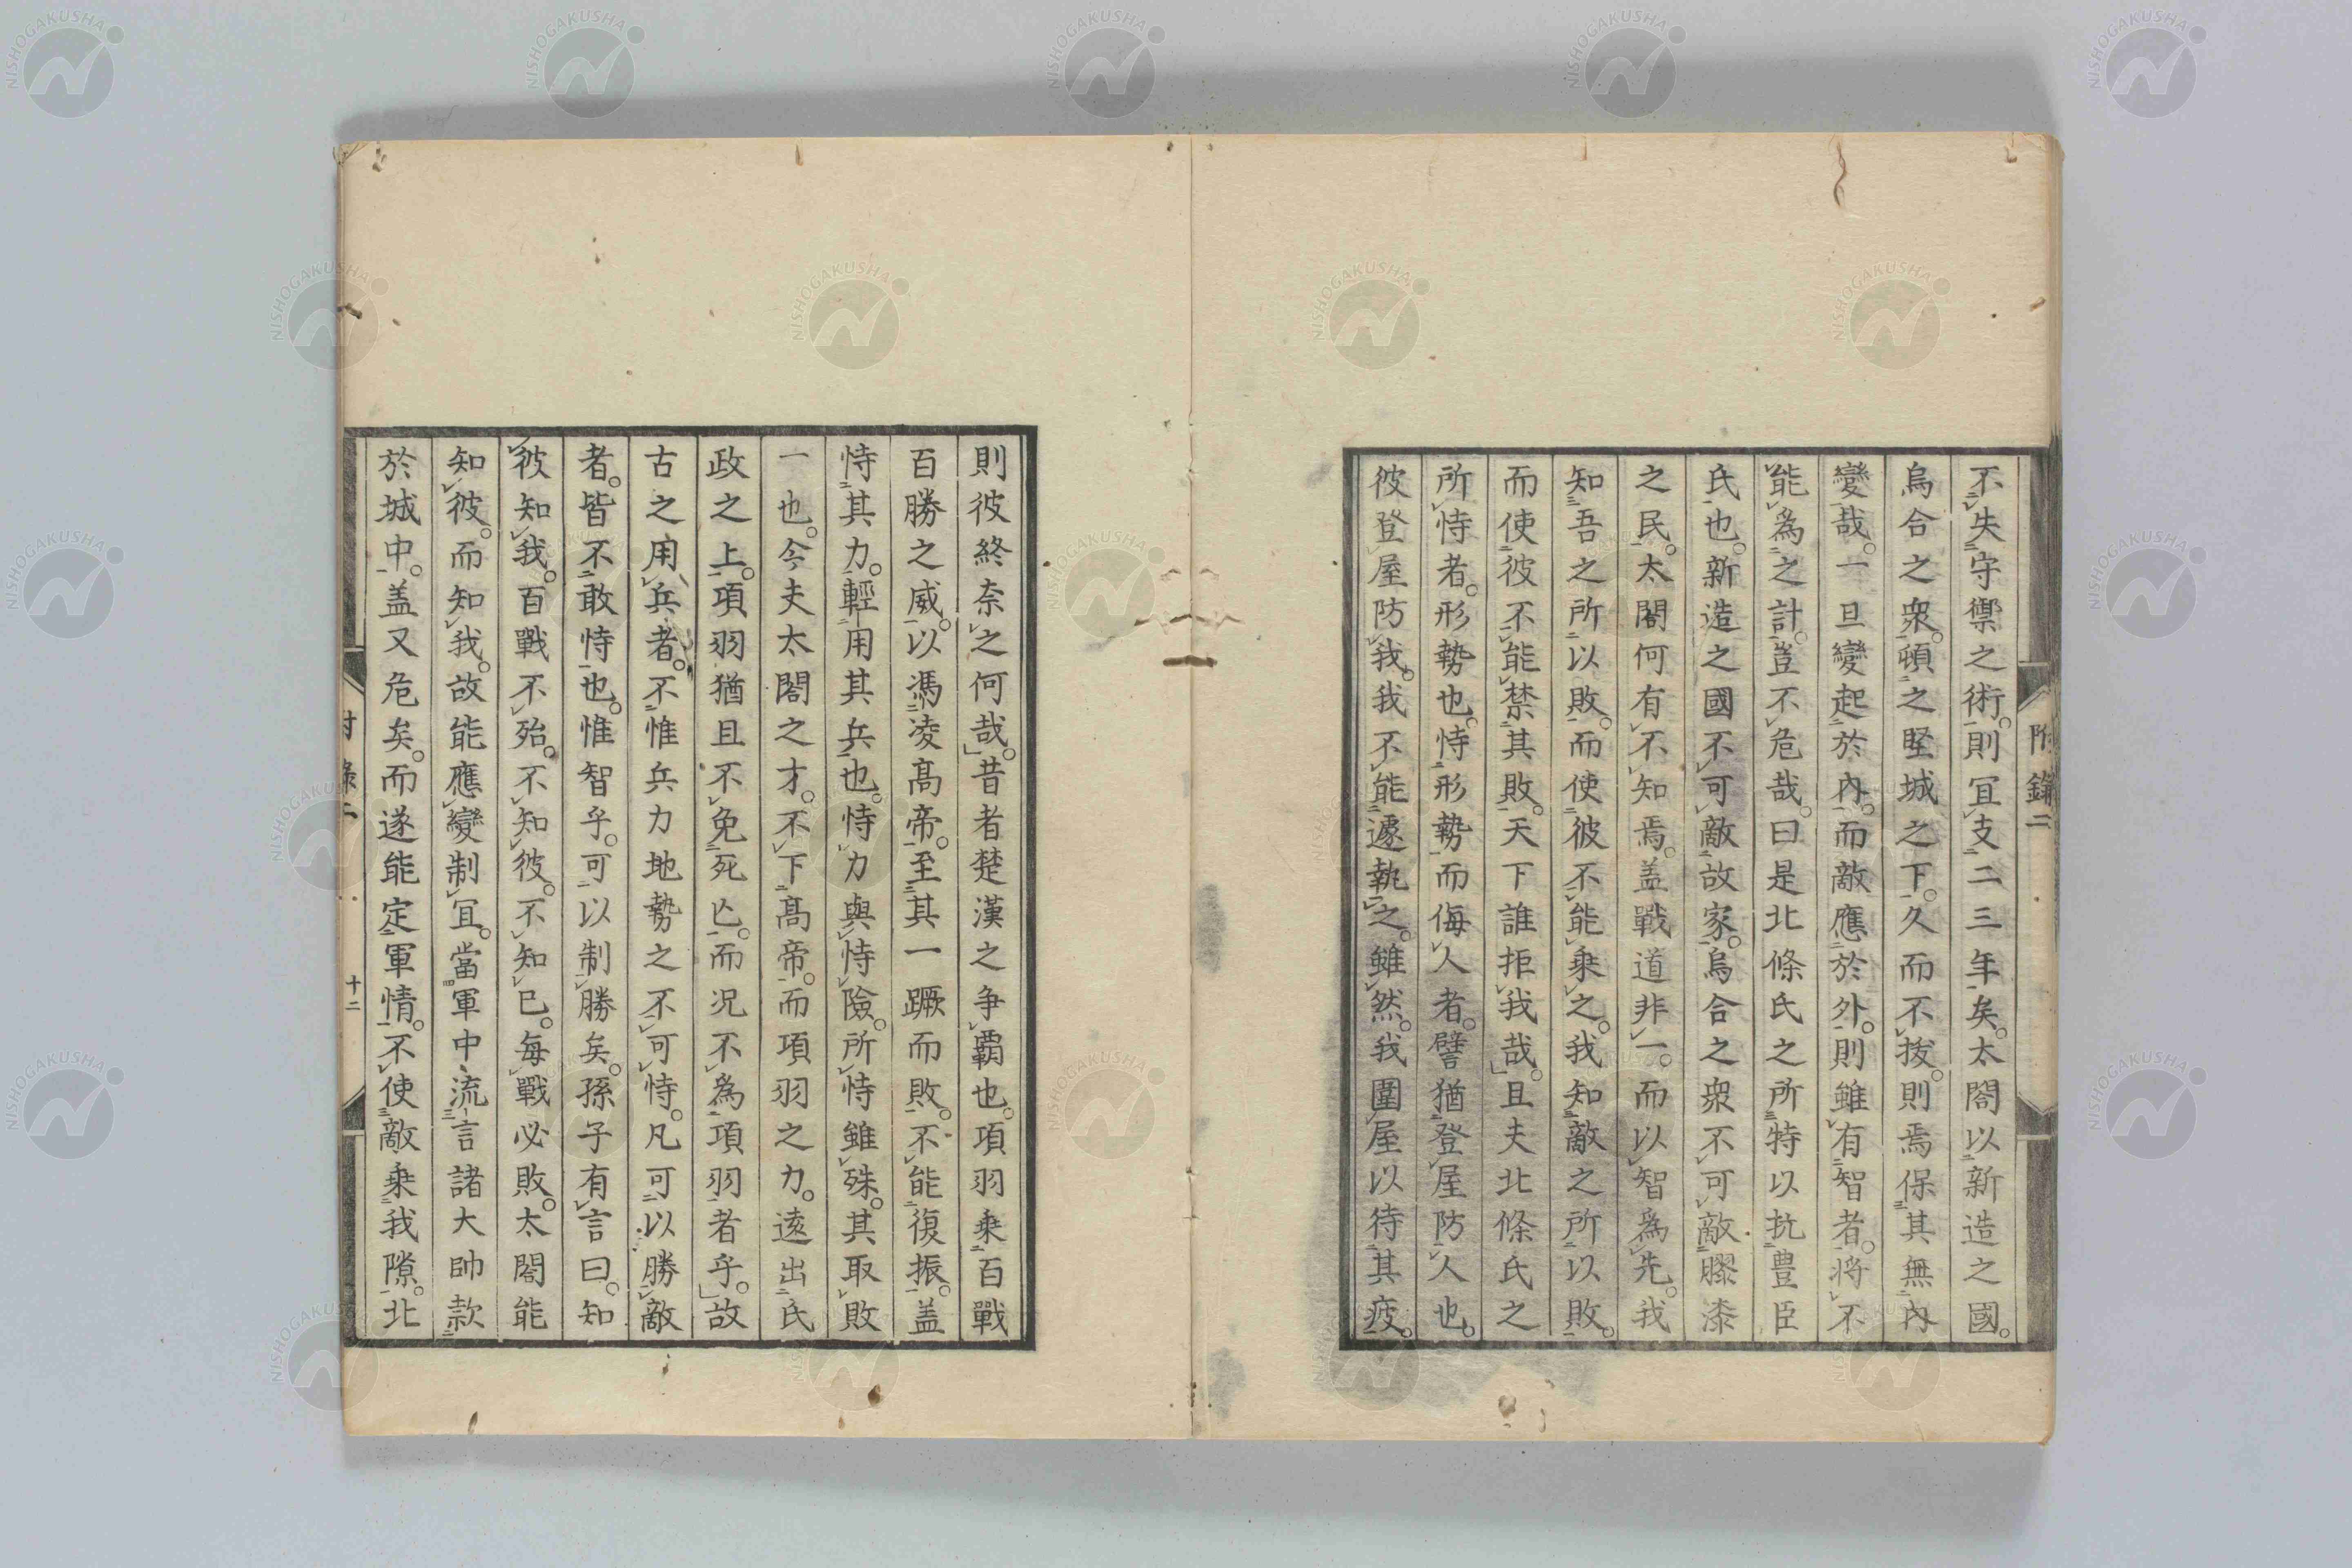 附錄二
不失守禦之術。則冝支二三年矣。太閤以新造之國。
烏合之衆。頓之堅城之下。久而不拔。則焉保其無內
變哉。一旦變起於內。而敵應於外。則雖有智者。將不
能爲之計。豈不危哉。曰是北條氏之所特以抗豊臣
氏也。新造之國不可敵故家。烏合之衆不可敵膠漆
之民。太閤何有不知焉。盖戰道非一。而以智爲先。我
知吾之所以敗。而使彼不能乘之。我知敵之所以敗。
而使彼不能禁其敗。天下誰拒我哉。」且夫北條氏之
所恃者。形勢也。恃形勢而侮人者。譬猶登屋防人也。
彼登屋防我。我不能遽執之。雖然。我圍屋以待其疲。
則彼終奈之何哉。」昔者楚漢之争覇也。項羽乘百戰
百勝之威。以馮凌髙帝。至其一蹶而敗。不能復振。盖
恃其力。輕用其兵也。恃力與恃險。所恃雖殊。其取敗
一也。今夫太閤之才。不下髙帝。而項羽之力。遠出氏
政之上。項羽猶且不免死亡。而况不爲項羽者乎。」故
古之用兵者。不惟兵力地勢之不可恃。凡可以勝敵
者。皆不敢恃也。惟智乎。可以制勝矣。孫子有言曰。知
彼知我。百戰不殆。不知彼。不知已。每戰必敗。太閤能
知彼。而知我。故能應變制冝。當軍中流言諸大帥款
於城中。盖又危矣。而遂能定軍情。不使敵乘我隙。北
付錄二
十二